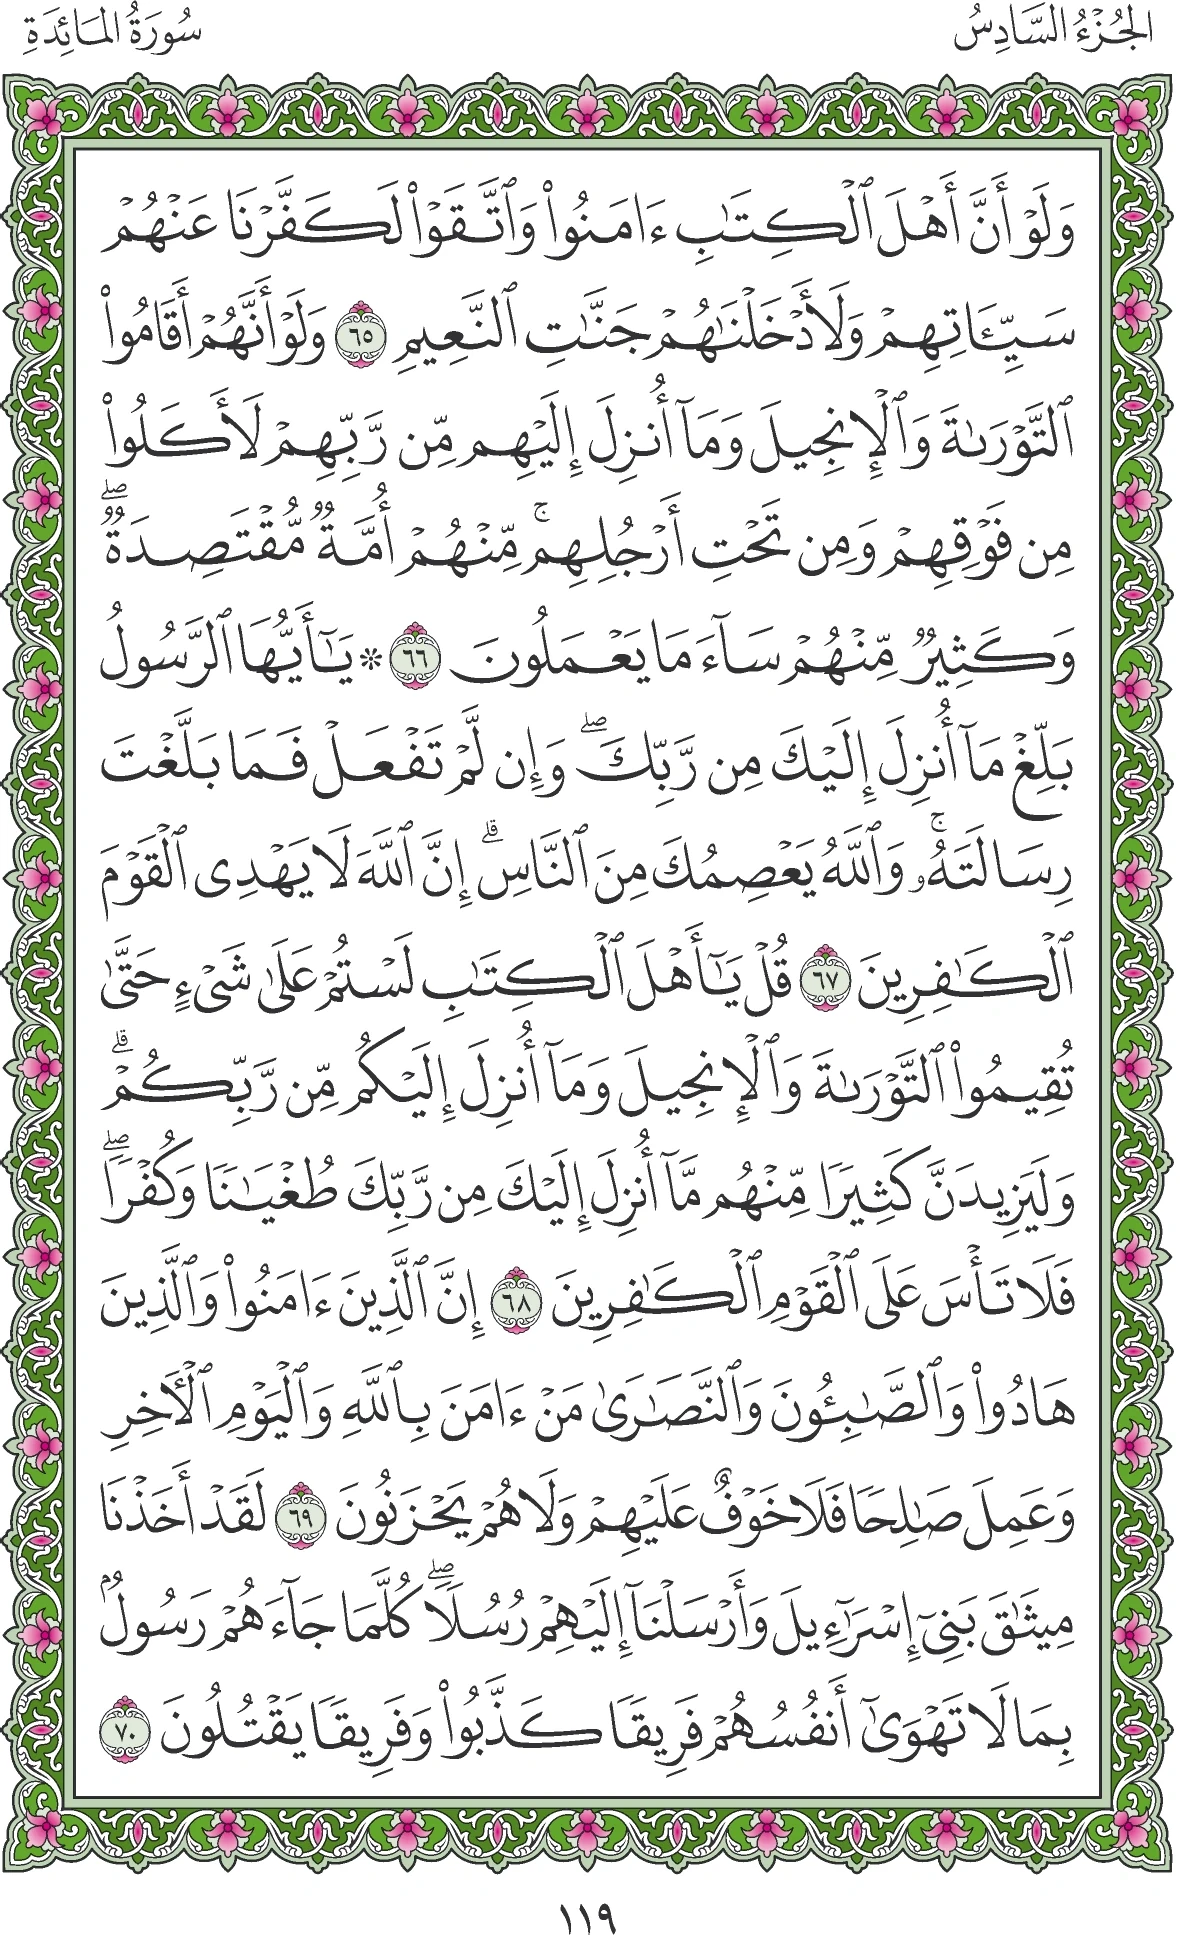 الجُزْءُ السَّادِسُ
سُورَةُ المَائِدَةِ
وَلَوْ أَنَّ أَهْلَ ٱلْكِتَٰبِ ءَامَنُوا۟ وَٱتَّقَوْا۟ لَكَفَّرْنَا عَنْهُمْ
سَيِّـَٔاتِهِمْ وَلَأَدْخَلْنَٰهُمْ جَنَّٰتِ ٱلنَّعِيمِ ٦٥ وَلَوْ أَنَّهُمْ أَقَامُوا۟
ٱلتَّوْرَىٰةَ وَٱلْإِنجِيلَ وَمَآ أُنزِلَ إِلَيْهِم مِّن رَّبِّهِمْ لَأَكَلُوا۟
مِن فَوْقِهِمْ وَمِن تَحْتِ أَرْجُلِهِم ۚ مِّنْهُمْ أُمَّةٌ مُّقْتَصِدَةٌ ۖ
وَكَثِيرٌ مِّنْهُمْ سَآءَ مَا يَعْمَلُونَ ٦٦ * يَٰٓأَيُّهَا ٱلرَّسُولُ
بَلِّغْ مَآ أُنزِلَ إِلَيْكَ مِن رَّبِّكَ ۖ وَإِن لَّمْ تَفْعَلْ فَمَا بَلَّغْتَ
رِسَالَتَهُۥ ۚ وَٱللَّهُ يَعْصِمُكَ مِنَ ٱلنَّاسِ ۗ إِنَّ ٱللَّهَ لَا يَهْدِى ٱلْقَوْمَ
ٱلْكَٰفِرِينَ ٦٧ قُلْ يَٰٓأَهْلَ ٱلْكِتَٰبِ لَسْتُمْ عَلَىٰ شَىْءٍ حَتَّىٰ
تُقِيمُوا۟ ٱلتَّوْرَىٰةَ وَٱلْإِنجِيلَ وَمَآ أُنزِلَ إِلَيْكُم مِّن رَّبِّكُمْ ۗ
وَلَيَزِيدَنَّ كَثِيرًا مِّنْهُم مَّآ أُنزِلَ إِلَيْكَ مِن رَّبِّكَ طُغْيَٰنًا وَكُفْرًا ۖ
فَلَا تَأْسَ عَلَى ٱلْقَوْمِ ٱلْكَٰفِرِينَ ٦٨ إِنَّ ٱلَّذِينَ ءَامَنُوا۟ وَٱلَّذِينَ
هَادُوا۟ وَٱلصَّٰبِـُٔونَ وَٱلنَّصَٰرَىٰ مَنْ ءَامَنَ بِٱللَّهِ وَٱلْيَوْمِ ٱلْـَٔاخِرِ
وَعَمِلَ صَٰلِحًا فَلَا خَوْفٌ عَلَيْهِمْ وَلَا هُمْ يَحْزَنُونَ ٦٩ لَقَدْ أَخَذْنَا
مِيثَٰقَ بَنِىٓ إِسْرَٰٓءِيلَ وَأَرْسَلْنَآ إِلَيْهِمْ رُسُلًا ۖ كُلَّمَا جَآءَهُمْ رَسُولٌۢ
بِمَا لَا تَهْوَىٰٓ أَنفُسُهُمْ فَرِيقًا كَذَّبُوا۟ وَفَرِيقًا يَقْتُلُونَ ٧٠
١١٩